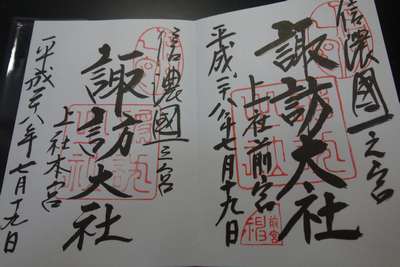 信濃國一之宮
諏訪大社
上社前宮
平成二八年七月十九日
前宮
信濃國一之宮
諏訪大社
上社本宮
平成二八年七月十九日